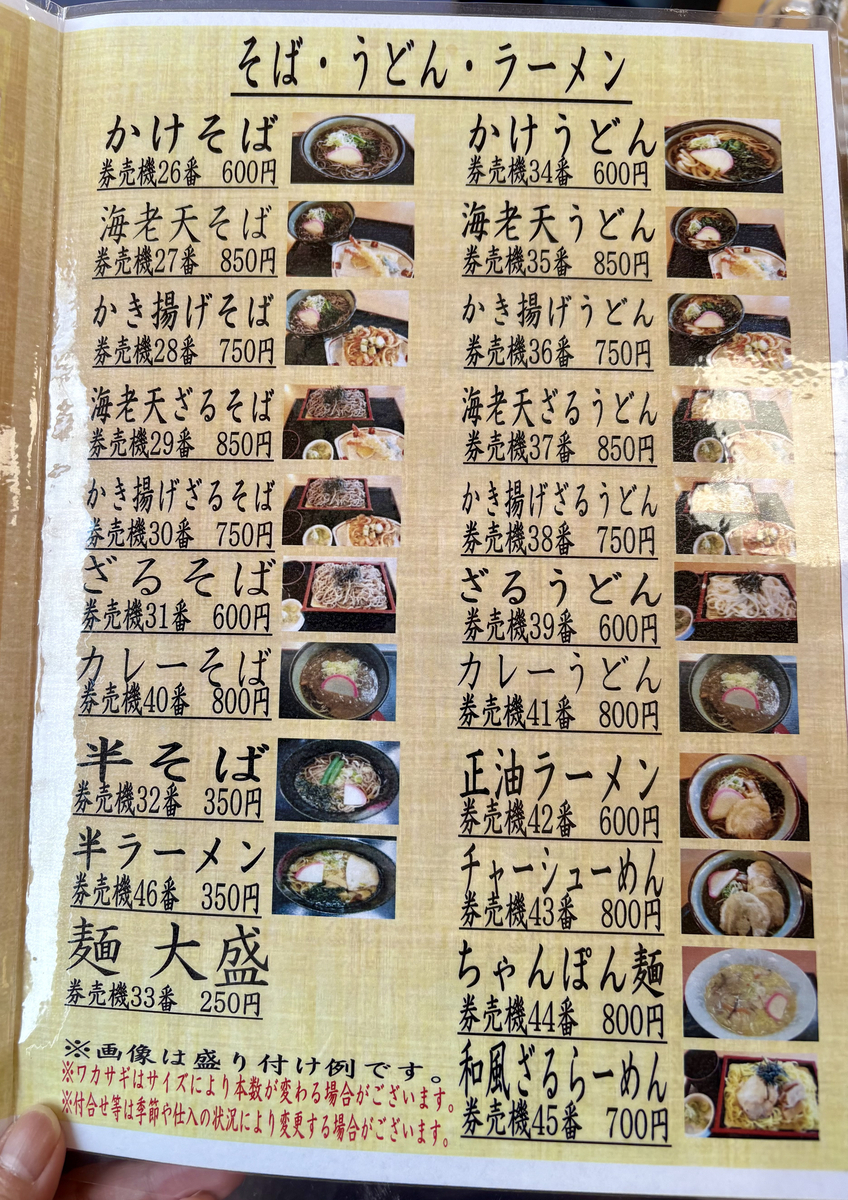 そば・うどん・ラーメン
かけそば
券売機26番 600円
海老天そば
券売機27番 850円
かき揚げそば
券売機28番 750円
海老天ざるそば
券売機29番 850円
かき揚げざるそば
券売機30番 750円
ざるそば
券売機31番 600円
カレーそば
券売機40番 800円
半そば
券売機32番 350円
半ラーメン
券売機46番 350円
麺 大盛
券売機33番 250円
かけうどん
券売機34番 600円
海老天うどん
券売機35番 850円
かき揚げうどん
券売機36番 750円
海老天ざるうどん
券売機37番 850円
かき揚げざるうどん
券売機38番 750円
ざるうどん
券売機39番 600円
カレーうどん
券売機41番 800円
正油ラーメン
券売機42番 600円
チャーシューめん
券売機43番 800円
ちゃんぽん麺
券売機44番 800円
和風ざるらーめん
券売機45番 700円
※画像は盛り付け例です。
※ワカサギはサイズにより本数が変わる場合がございます。
※付合せ等は季節や仕入の状況により変更する場合がございます。